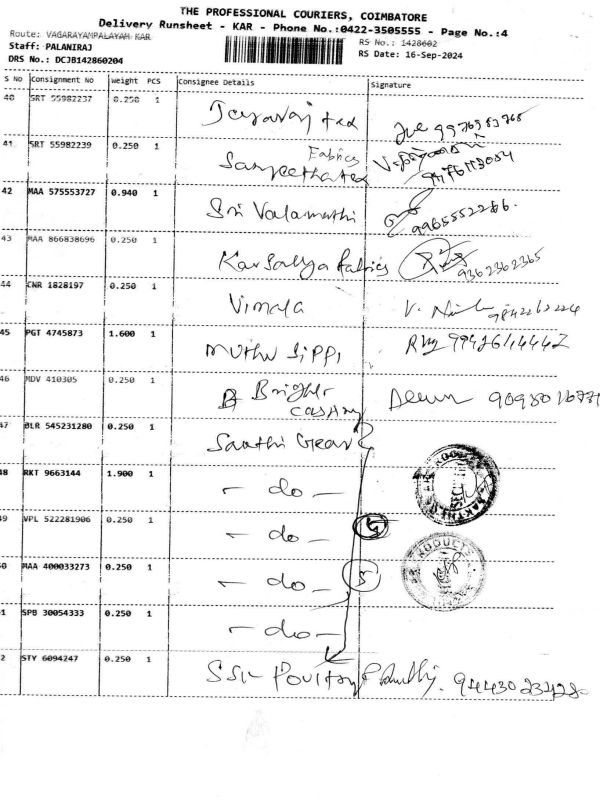 THE PROFESSIONAL COURIERS, COIMBATORE
Delivery Runsheet - KAR - Phone No.:0422-3505555 - Page No.:4
Route: VAGARAYAMPALAYAM KAR
RS No.: 1428602
Staff: PALANIRAJ
RS Date: 16-Sep-2024
DRS No.: DCJB142860204
S No Consignment No Weight PCS Consignee Details Signature
40 SRT 55982237 0.250 1
41 SRT 55982239 0.250 1 Fabrics
42 MAA 575553727 0.940 1 Sri Valamathi 9965552286.
43 MAA 866838696 0.250 1 Kausalya Fabrics 9362362365
44 CNR 1828197 0.250 1 Vimala V.
45 PGT 4745873 1.600 1 Muthu Sippi
46 MDV 410305 0.250 1 Bright
47 BLR 545231280 0.250 1 Sakthi Gear
48 RKT 9663144 1.900 1 - do -
49 VPL 522281906 0.250 1 - do -
50 MAA 400033273 0.250 1 - do - 5
51 SPB 30054333 0.250 1 - do -
52 STY 6094247 0.250 1 SSK Poultry